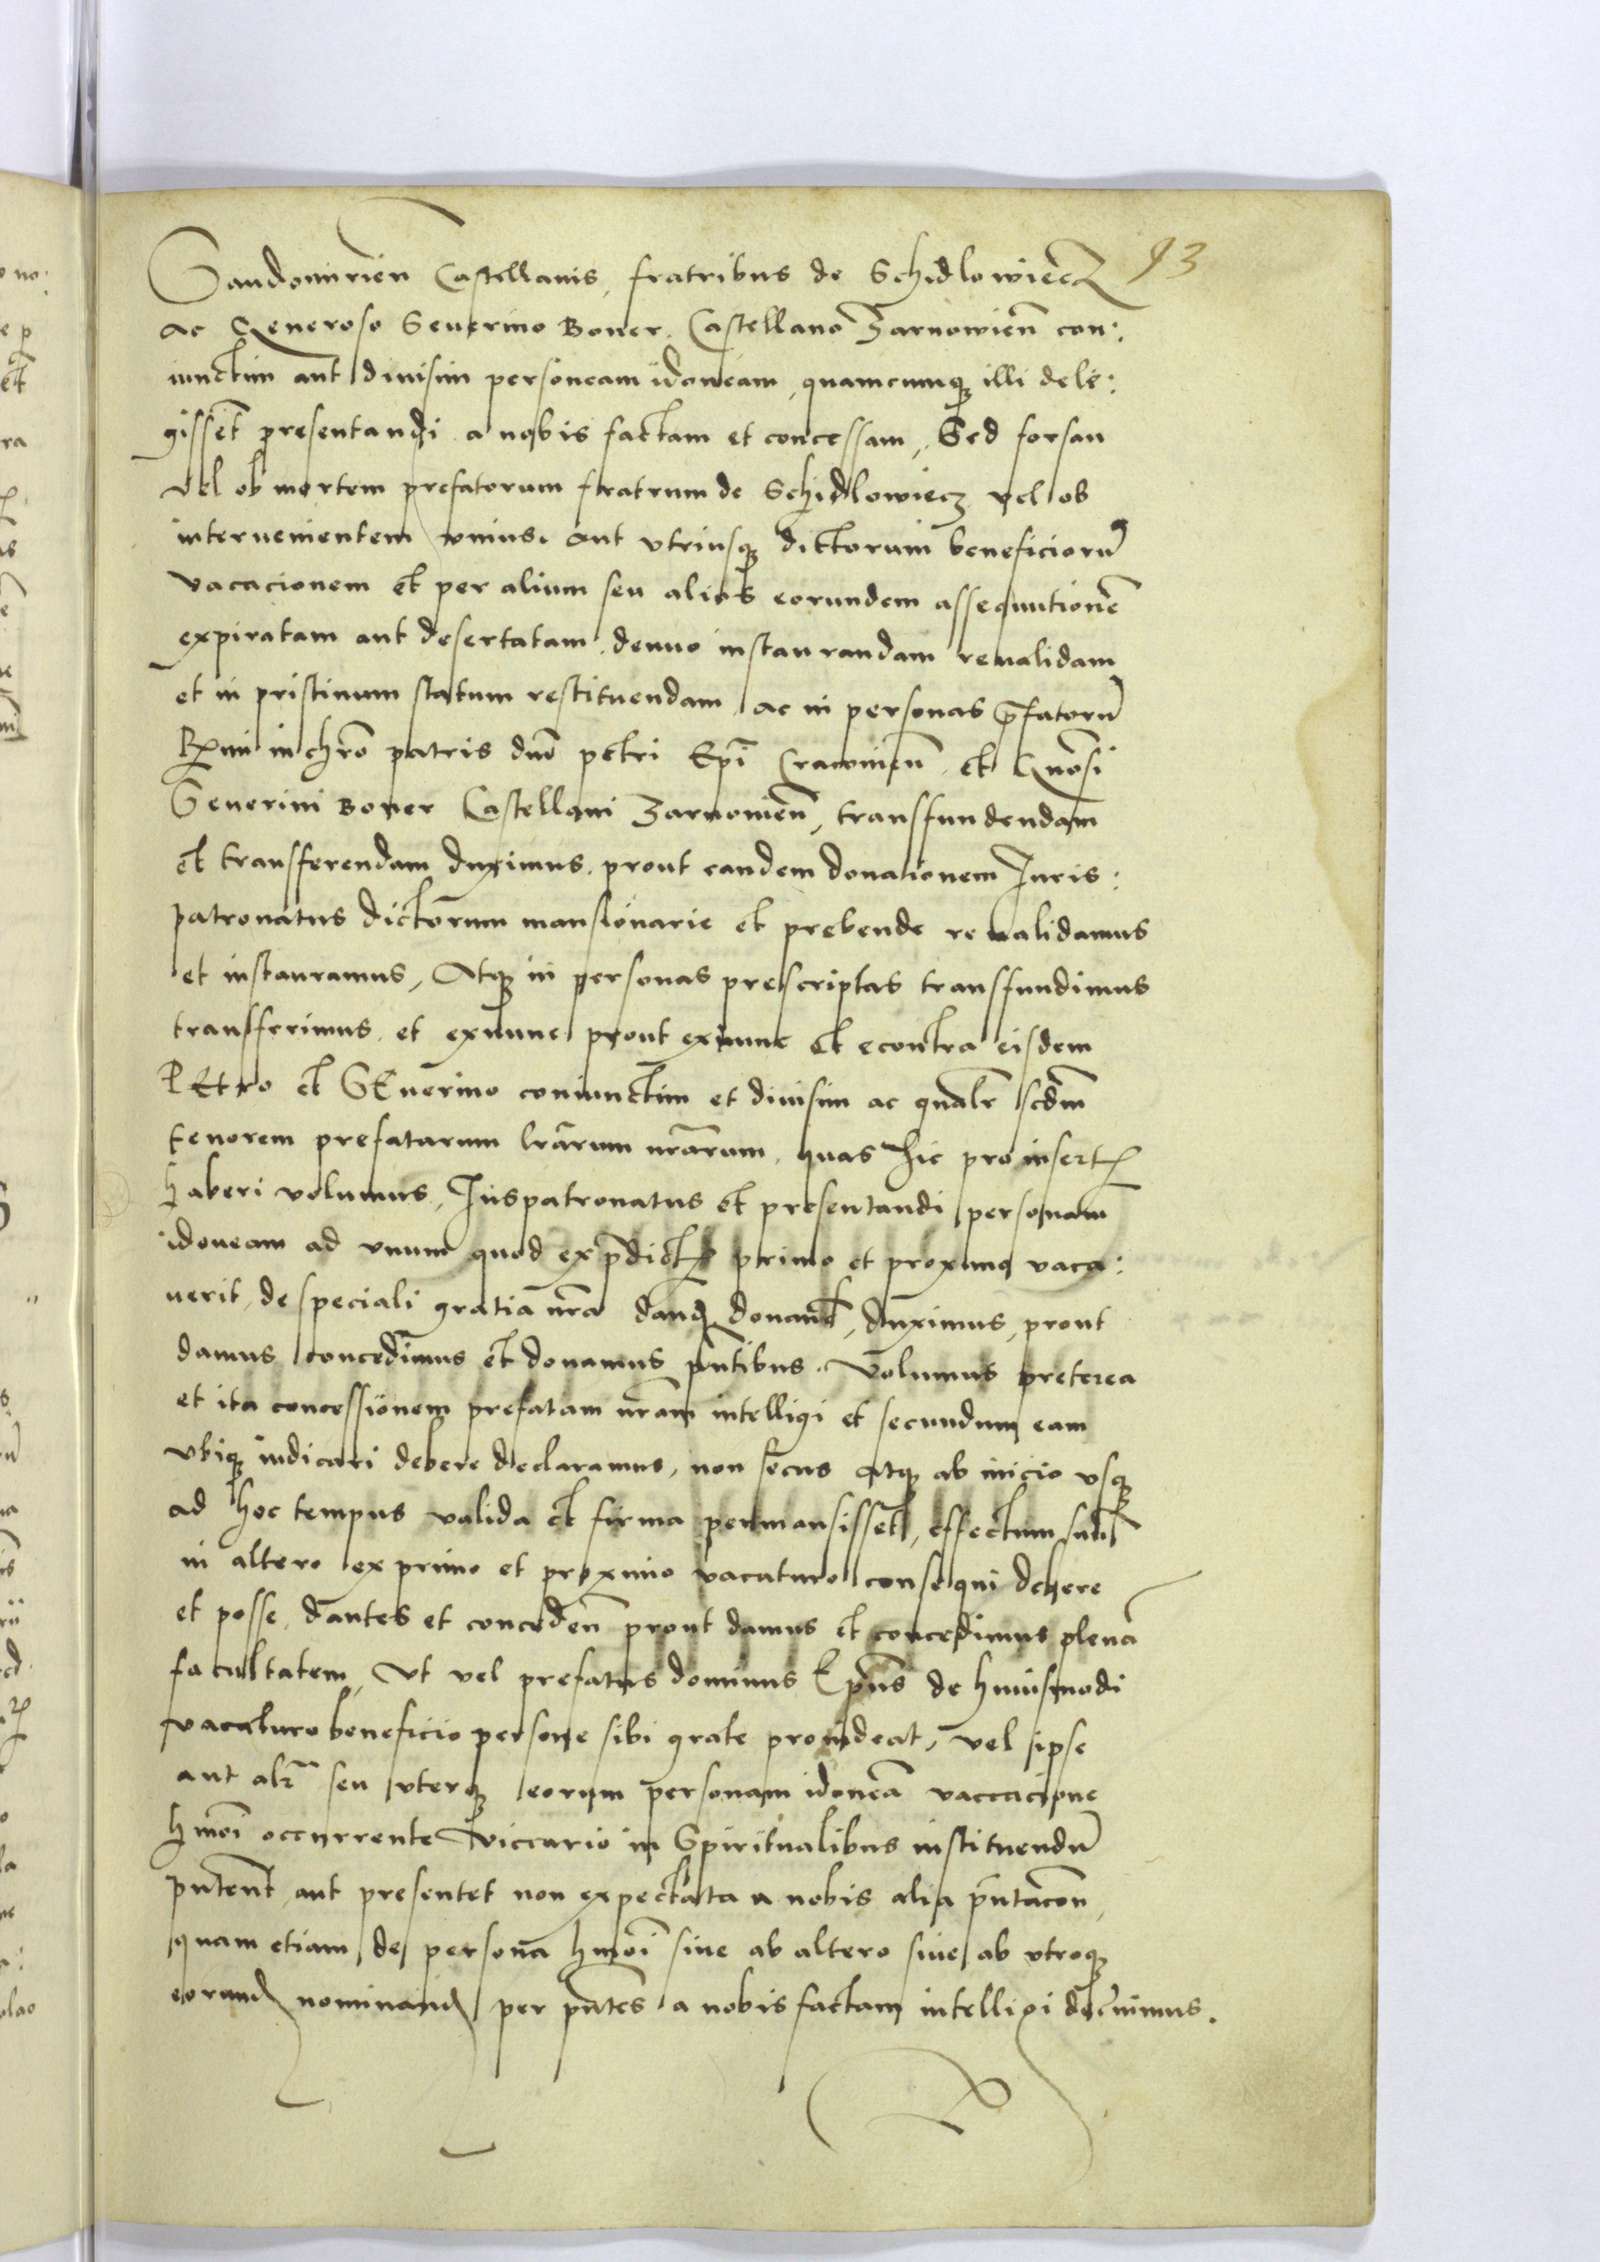 93
Sandomirien̄ Castellanis, fratribus de Schidlowiecz
ac Generoso Seuerino Boner Castellano Zarnowien̄ con:
iunctim aut diuisim personeam idoneam, quamcumq; illi dele:
gissēt presentandi a nobis factam et concessam, Sed forsan
vel ob mortem prefatorum fratrum de Schidlowiecz vel ob
interuenientem vnius, aut vtriusq; dictorum beneficiorū
vacacionem et per alium seu alios eorundem assequutionē
expiratam aut desertatam, denuo instaurandam reualidam
et in pristinum statum restituendam, ac in personas p̄fatorū
Rx̄mi in chr̄o patris dn̄o petri Ep̄i Cracouien̄ et Gn̄osi
Seuerini Boner Castellani Zarnouien̄, transfundendam
et transferendam duximus, prout eandem donationem Juris:
patronatus dictorum mansionarie et prebende reualidamus
et instauramus, Atq; in personas prescriptas transfundimus
transferimus et exnunc prout exnunc et econtra eisdem
PEtro et SEuerino coniunctim et diuisim ac qualr̄ scdm̄
tenorem prefatarum lr̄arum nr̄arum, quas hic pro insert
haberi volumus, Juspatronatus et presentandi personam
idoneam ad vnum quod ex p̄dict primo et proximo vaca:
uerit, de speciali gratia nr̄a dand donand, duximus, prout
damus concedimus et donamus pn̄tibus. Volumus preterea
et ita concessionem prefatam nr̄am intelligi et secundum eam
vbiq; iudicari debere declaramus, non secus atq; ab inicio vsq;
ad hoc tempus valida et firma permansisset, effectum suū
in altero ex primo et proximo vacaturo consequi debere
et posse, dantes et conceden̄ prout damus et concedimus plenā
facultatem, Vt vel prefatus dominus Ep̄us de huiusmodi
vacaturo beneficio persone sibi grate prouideat, vel ipse
aut alr̄ seu vterq; eorum personam idoneā vaccacione
hm̄oi occurrente viccario in Spiritualibus instituendū
pn̄tent aut presentet non expectata a nobis alia pn̄tacōn,
quam etiam de persona hm̄oi siue ab altero siue ab vtroq;
eorund nominand per pn̄tes a nobis factam intelligi decernimus.